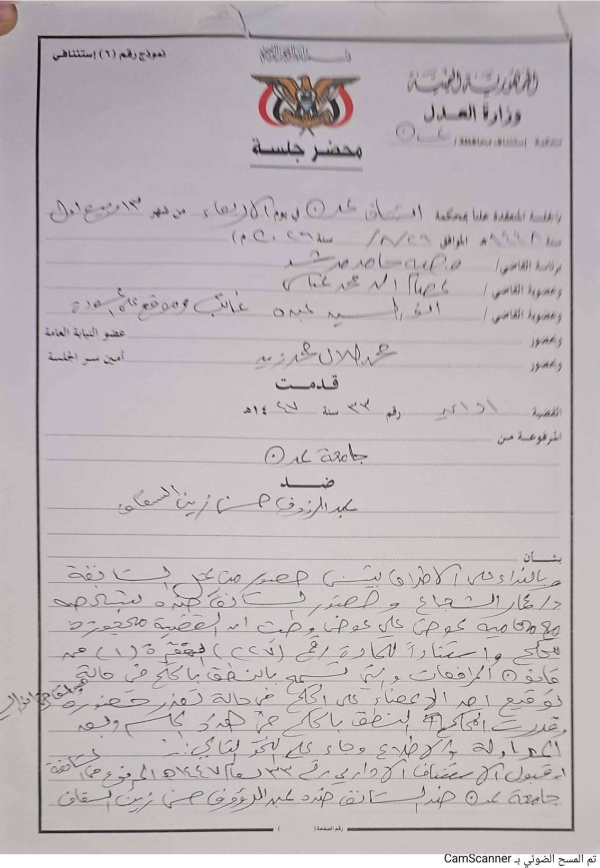 بسم الله الرحمن الرحيم
نموذج رقم (٦) إستئنافي
الجمهورية اليمنية
وزارة العدل
محكمة إستئناف محافظة / عدن
محضر جلسة
بالجلسة المنعقدة علناً بمحكمة استئناف عدن في يوم الاربعاء من شهر ١٣ ربيع اول
سنة ١٤٤٨هـ الموافق ٢٦/٨/ سنة ٢٠٢٦م)
برئاسة القاضي/ حامد مرشد
وعضوية القاضي/ عصام محمد
وعضوية القاضي/ السيد عبده غائب وموقع على المسودة
وبحضور عضو النيابة العامة
وبحضور محمد طلال محمد زيد أمين سر الجلسة
قدمت
القضية اداري رقم ٣٣ سنة ١٤٤٧هـ
المرفوعة من
جامعة عدن
ضد
عبدالرؤوف حسن زين السقاف
بشأن
وبالنداء على الاطراف تبين حضور ممثل المستأنفة
د/ الشجاع وحضور المستأنف ضده بشخصه
مع محاميه عوض علي عوض وحيث ان القضية محجوزة
للحكم واستناداً للمادة رقم (٢٢٧) الفقرة (١) من
قانون المرافعات والتي تسمح بالنطق بالحكم في حالة
توقيع احد الاعضاء على الحكم في حالة تعذر حضوره
وقررت المحكمة النطق بالحكم وبعد
المداولة والاطلاع وجاء على النحو التالي:
١- قبول الاستئناف الاداري رقم ٣٣ لسنة ١٤٤٧هـ المرفوع من المستأنفة
جامعة عدن ضد المستأنف ضده عبدالرؤوف حسن زين السقاف
رقم الصفحة ( )
تم المسح الضوئي بـ CamScanner